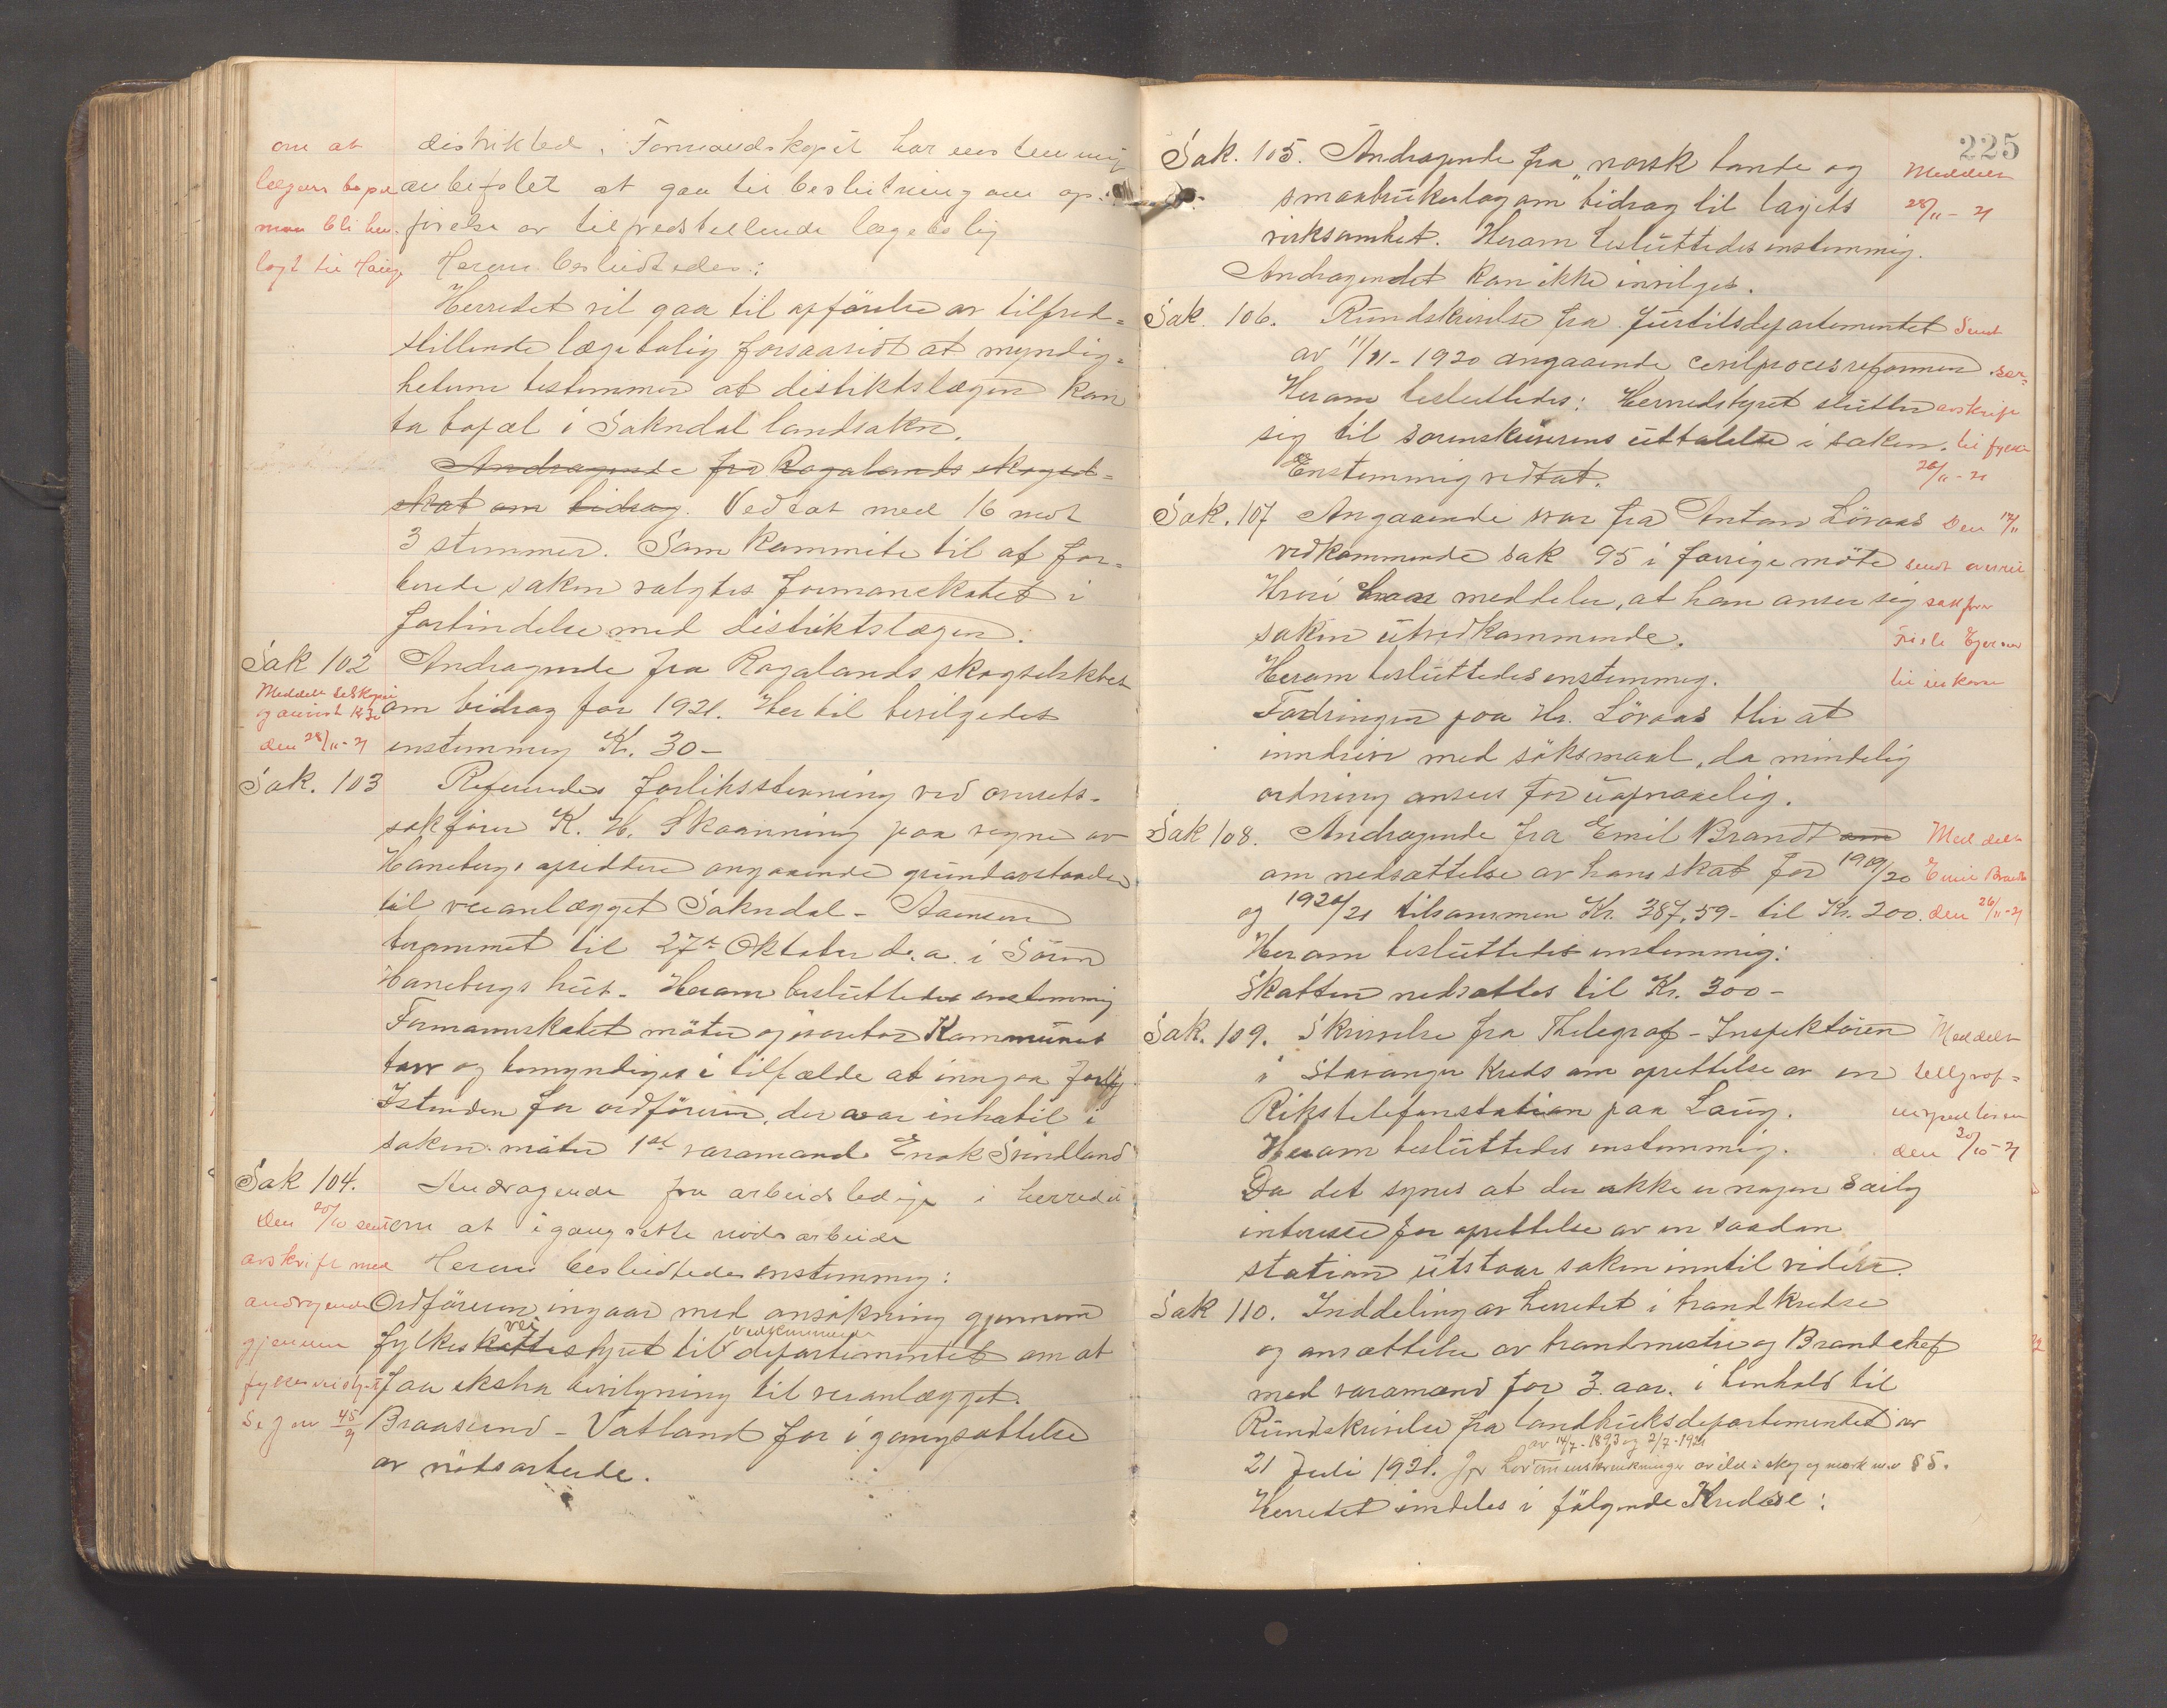 distriktet. Formandskapet har enstemmig
anbefalet at gaa til beslutning om op-
førelse av tilfredstillende lægebolig
Herom besluttedes:
Herredet vil gaa til opførelse av tilfred=
stillende lægebolig forsaavidt at myndig=
heterne bestemmer at distiktslægen kan
ta bopæl i Sokndal landsokn.
Andragende fra Rogalands skogsel=
skap om bidrag. Vedtat med 16 mot
3 stemmer. Som Kommite til at for=
berede saken valgtes formanskapet i
forbindelse med distriktslægen.
om at
lægens bopæl
maa bli hen-
lagt til Hauge
Sak 102 Andragende fra Rogalands skogselskap
om bidrag for 1921. Hertil bevilgedes
enstemmig Kr. 30-
Meddelt Selskapet
og anvist kr 30
den 28/11-21
Sak. 103 Refereredes forliksstevning ved overrets-
sakfører K. H. Skaanning paa vegne av
Haneberg opsiddere angaaende grundavstaaelse
til veianlægget Sokndal -
berammet til 27de Oktober d.a. i Sören
Hanebergs hus. Herom besluttedes enstemmig
Formannskapet möter og ivaretar Kommunens
tarv og bemyndiges i tilfælde at inngaa forlig.
Istenden for ordföreren, der var inhabil i
saken möter 1ste varamand Enok Svindland
Sak 104. Andragende fra arbeidsledige i herredet
om at igangsætte nødsarbeide
Herom besluttedes enstemmig:
Ordföreren ingaar med ansökning gjennem
fylkesveistyret til vedkommende departementet om at
faa ekstra bevilgning til veianlægget
Braasund - Vatland for igangsættelse
av nödsarbeide.
Den 20/10 sendt
avskrift med
andragende
gjennem
fylkesveistyret
Se j.nr 45/9
225
Sak. 105. Andragende fra "norsk bonde og
smaabrukerlag om bidrag til lagets
virksomhet. Herom besluttedes enstemmig.
Andragendet kan ikke innvilges.
Meddelt
28/11-21
Sak. 106. Rundskrivelse fra Justitsdepartementet
av 11/11-1920 angaaende civilprocesreformen
Herom besluttedes: Herredstyret slutter
sig til sorenskriverens uttalelse i saken.
Enstemmig vedtat.
Sendt
sær-
avskrift
til fylket
26/11-21
Sak. 107 Angaaende svar fra Anton Løvaas
vedkommende sak 95 i forrige möte
Hvori han meddeler, at han anser sig
saken utvedkommende.
Herom besluttedes enstemmig.
Fordringen paa Hr. Lövaas blir at
inndrive med söksmaal, da mindelig
ordning ansees for uopnaaelig.
Den 12/11
sendt overrets
sakfører
Egersund
til inkasso
Sak 108. Andragende fra Emil Brandt om
om nedsættelse av hans skat for 1919/20
og 1920/21 tilsammen Kr. 387,59- til Kr. 200.
Herom besluttedes enstemmig:
Skatten nedsattes til Kr. 300-
Meddelt
Emil Brandt
den 26/11-21
Sak. 109. Skrivelse fra Thelegraf-Inspektören
i Stavanger Kreds om oprettelse av en
Rikstelefonstation paa Laug.
Herom besluttedes enstemmig.
Da det synes at der ikke er nogen særlig
interesse for oprettelse av en saadan
station utstaar saken inntil videre.
Meddelt
tellgraf=
inspektören
den 20/10-21
Sak 110. Inddeling av herredet i brandkredse
og ansættelse av brandmestre og Brandchef
med varamænd for 3. aar. i henhold til
Rundskrivelse fra landbruksdepartementet av
av 14/7-1893 og 2/7-1921
21 Juli 1921. Jfr Lov om innskrænkninger av ild i skog og mark m.v §5.
Herredet inndeles i fölgende Kredse: